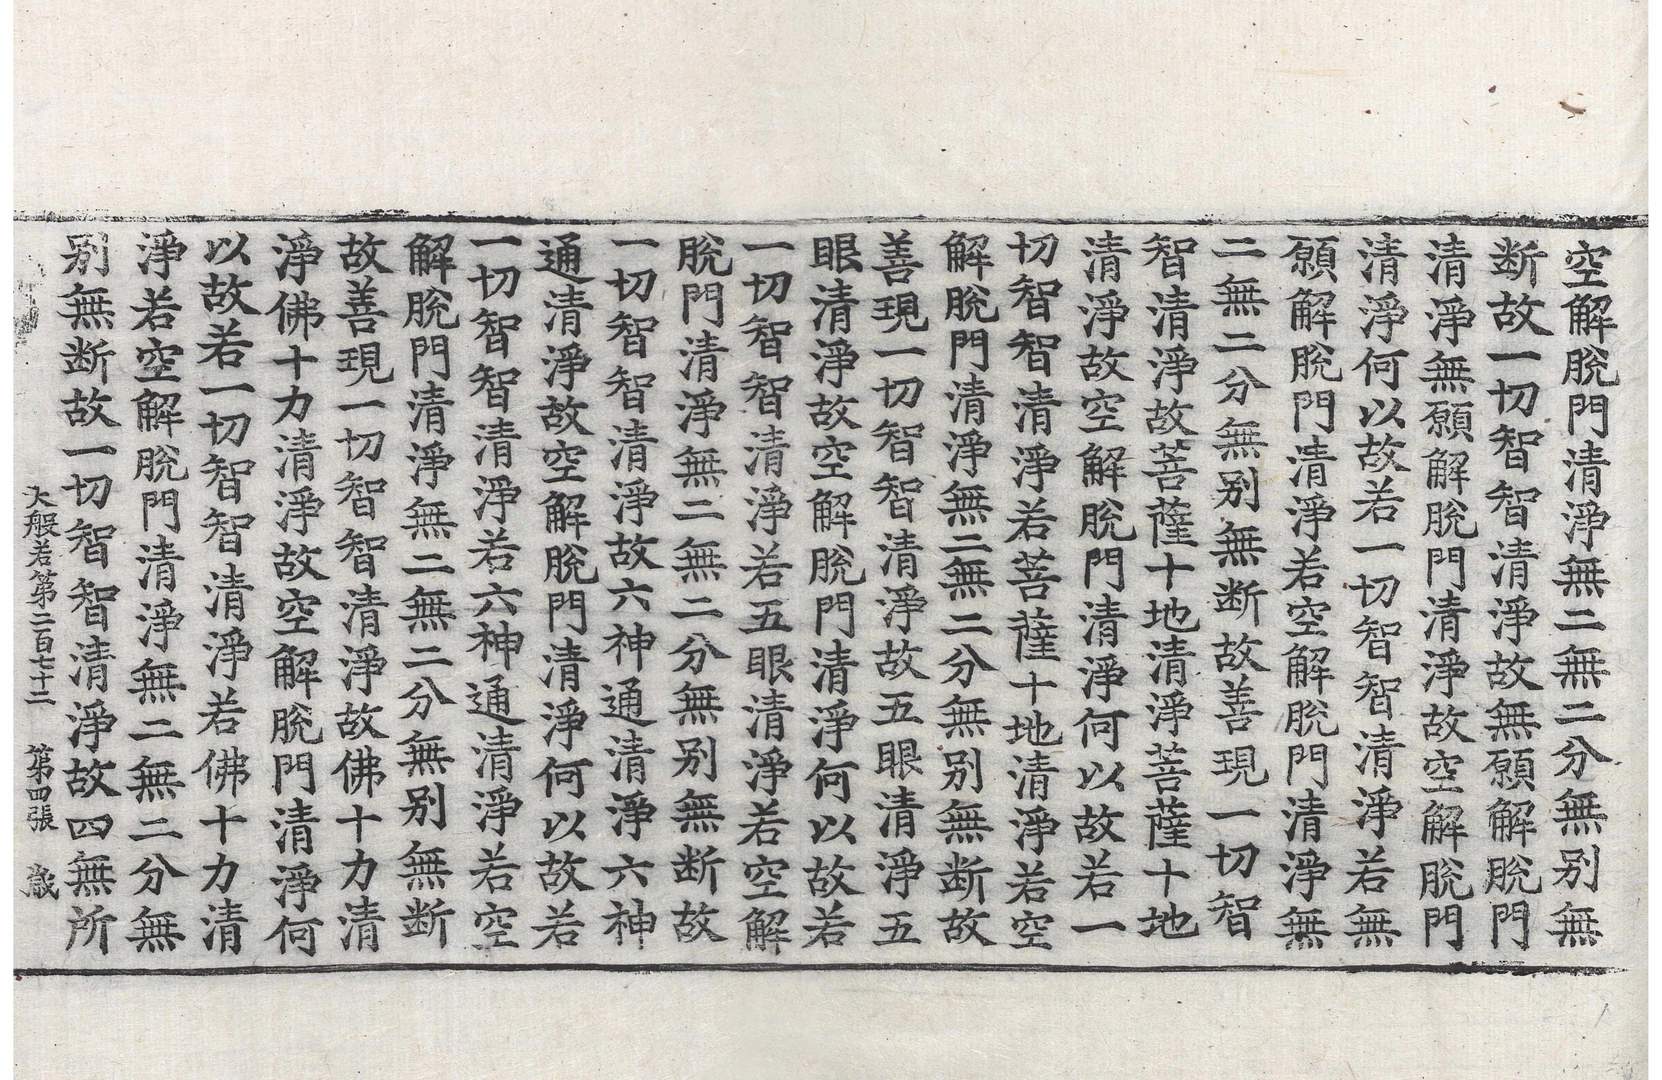 空解脫門清淨無二無二分無别無
断故一切智智清淨故無願解脫門
清淨無願解脫門清淨故空解脫門
清淨何以故若一切智智清淨若無
願解脫門清淨若空解脫門清淨無
二無二分無别無断故善現一切智
智清淨故菩薩十地清淨菩薩十地
清淨故空解脫門清淨何以故若一
切智智清淨若菩薩十地清淨若空
解脫門清淨無二無二分無别無断故
善現一切智智清淨故五眼清淨五
眼清淨故空解脫門清淨何以故若
一切智智清淨若五眼清淨若空解
脫門清淨無二無二分無别無断故
一切智智清淨故六神通清淨六神
通清淨故空解脫門清淨何以故若
一切智智清淨若六神通清淨若空
解脫門清淨無二無二分無别無断
故善現一切智智清淨故佛十力清
淨佛十力清淨故空解脫門清淨何
以故若一切智智清淨若佛十力清
淨若空解脫門清淨無二無二分無
别無断故一切智智清淨故四無所
大般若第二百七十二 第四張 歲